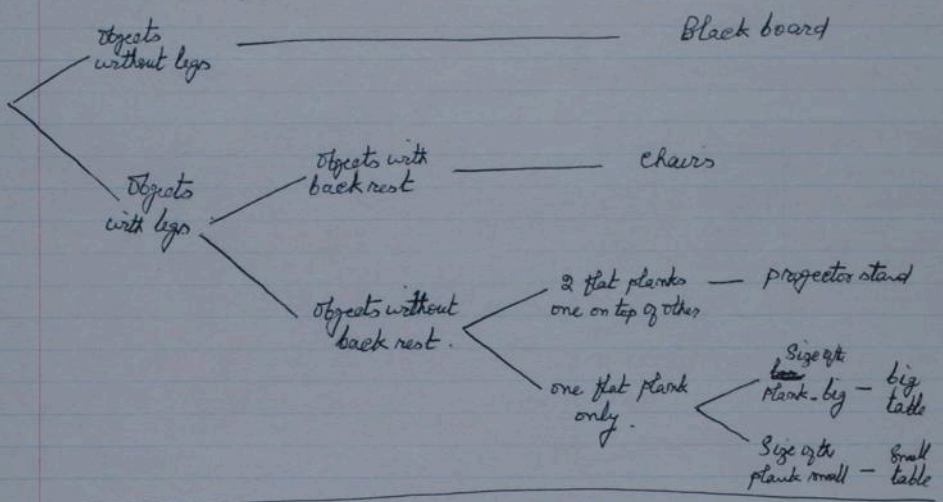 Objects
without legs
Black board
Objects
with legs
Objects with
back rest
Chairs
Objects without
back rest.
2 flat planks
one on top of other
projector stand
one flat plank
only.
Size of the
plank - big - big
table
Size of the
plank small - Small
table